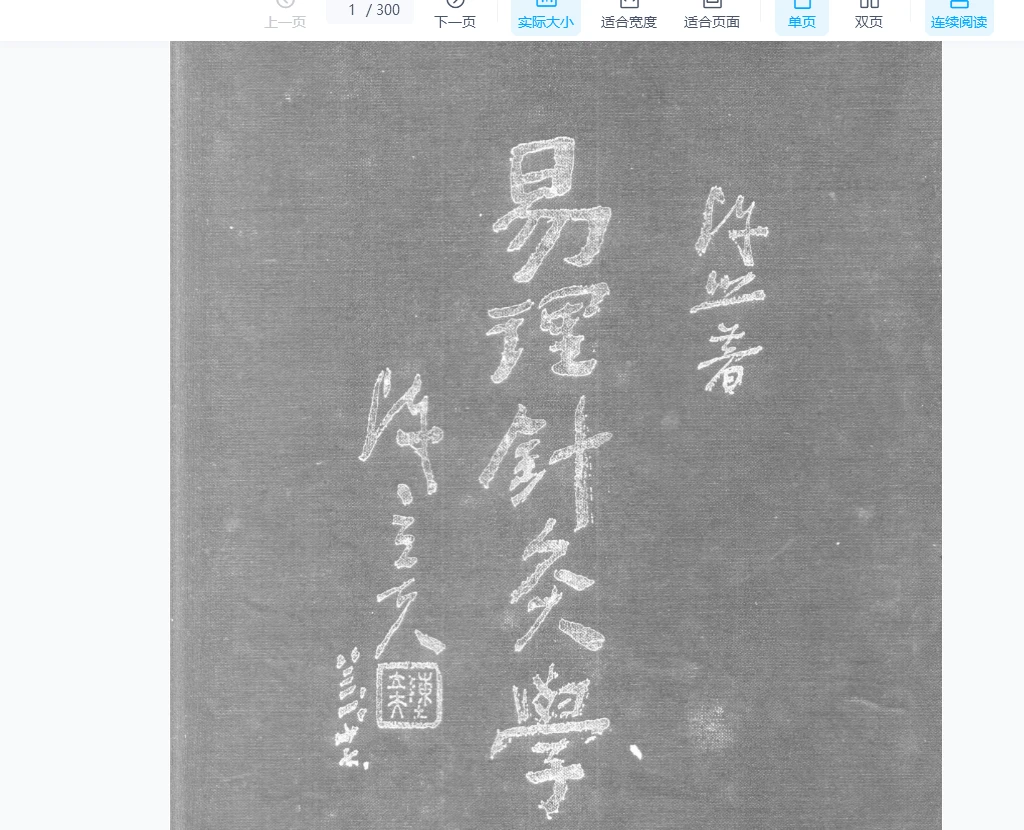 上一页 1 / 300 下一页 实际大小 适合宽度 适合页面 单页 双页 连续阅读
陳照著
易理針灸學
陳立夫
陳立夫